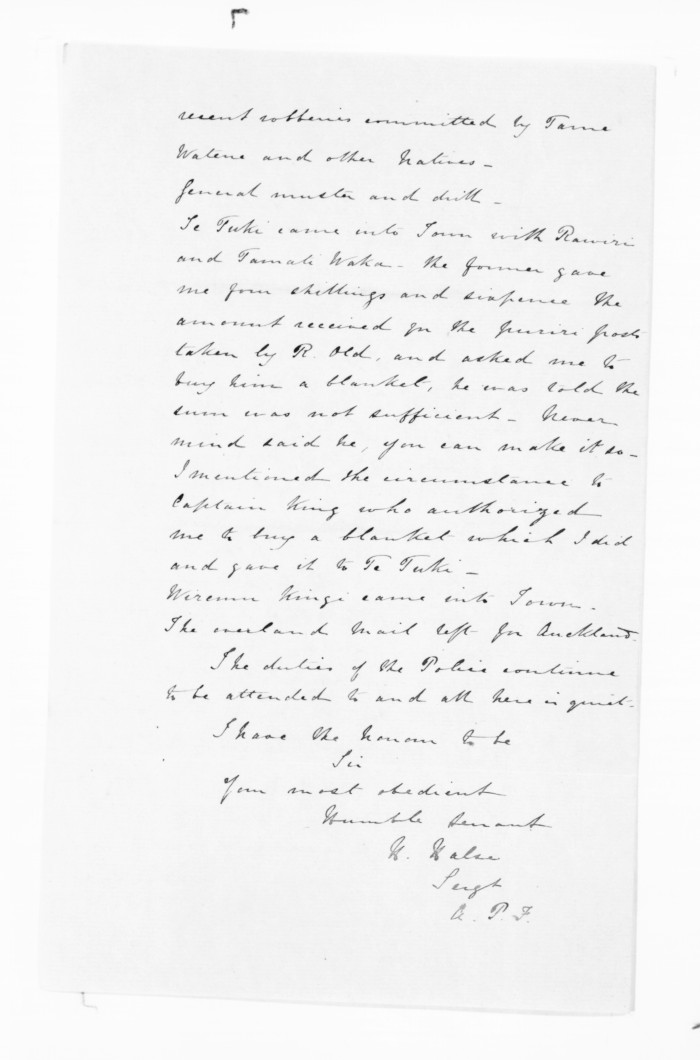 recent robberies committed by Tame
Watene and other Natives -
General muster and drill -
Te Tuki came into Town with Rawiri
and Tamati Waka - the former gave
me four shillings and sixpence the
amount received for the puriri posts
taken by R. Old, and asked me to
buy him a blanket, he was told the
sum was not sufficient - Never
mind said he, you can make it so -
I mentioned the circumstance to
Captain King who authorized
me to buy a blanket which I did
and gave it to Te Tuki -
Wiremu Kingi came into Town -
The overland Mail left for Auckland.
The duties of the Police continue
to be attended to and all here is quiet -
I have the honour to be
Sir
Your most obedient
Humble Servant
H. Halse
Sergt
A. P. F.